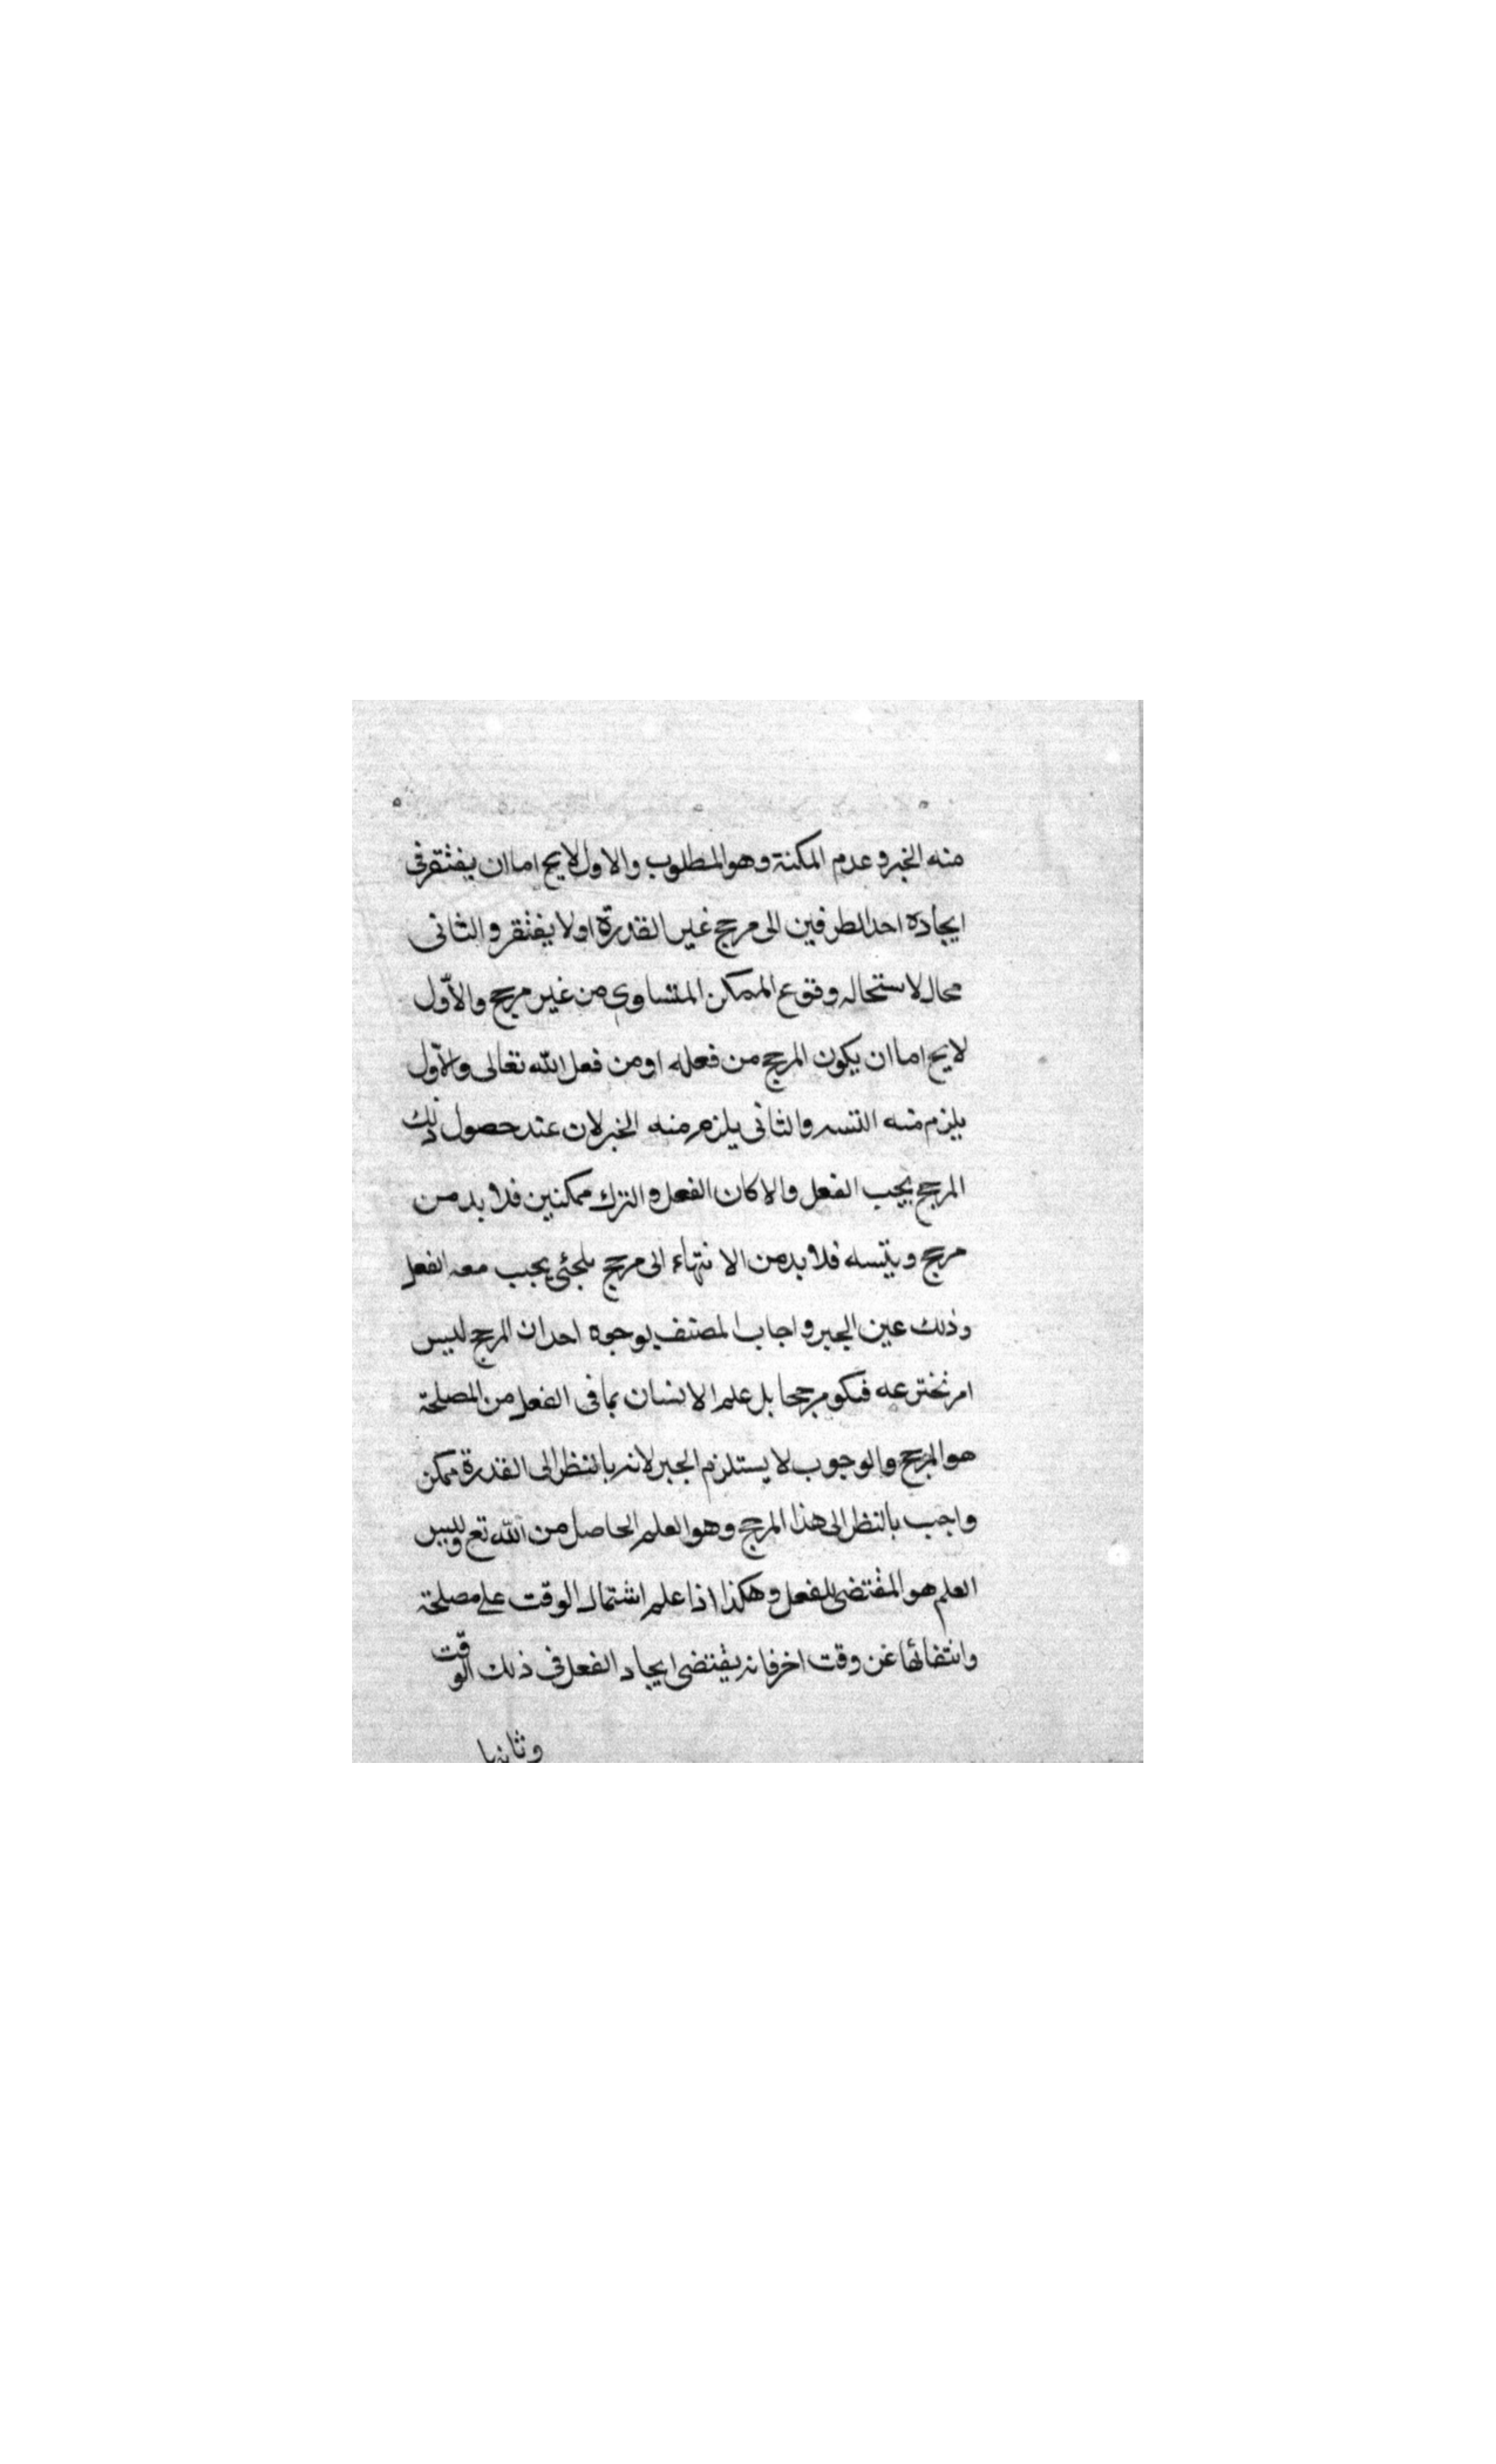 منه الخبر وعدم المكنة وهو المطلوب والاول لايخ اما ان يفتقر فى
ايجاده احد الطرفين الى مرجح غير القدرة او لا يفتقر والثانى
محال لاستحاله وقوع الممكن المتساوى من غير مرجح والاوّل
لايخ اما ان يكون المرجح من فعله او من فعل الله تعالى والاوّل
يلزم منه التسه والثانى يلزم منه الخبر لان عند حصول ذلك
المرجح يجب الفعل والا كان الفعل والترك ممكنين فلا بد من
مرجح ويتسه فلا بد من الا نتهاء الى مرجح ملجئى يجب معه الفعل
وذلك عين الجبر واجاب المصنف بوجوه احد ان المرجح ليس
امر نخترعه فيكو مرجحا بل علم الانسان بما فى الفعل من المصلحة
هو المرجح والوجوب لا يستلزم الجبر لانه بالنظر الى القدرة ممكن
واجب بالنظر الى هذا المرجح وهو العلم الحاصل من الله تع وليس
العلم هو المقتضى للفعل وهكذا اذا علم اشتمال الوقت على مصلحة
وانتفائها عن وقت اخر فانه يقتضى ايجاد الفعل فى ذلك الوقت
وثانيها